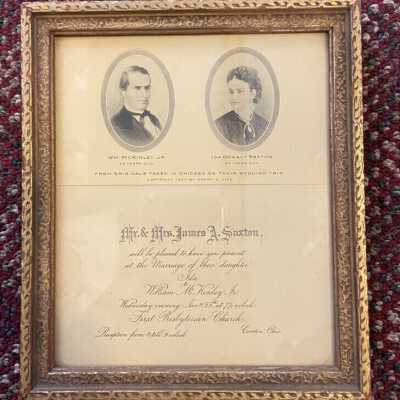 WM. McKINLEY JR.
IDA DEWALT SAXTON
FROM ORIGINALS TAKEN IN CHICAGO ON THEIR WEDDING TRIP
COPYRIGHT
Mr. & Mrs. James A. Saxton,
will be pleased to have you present
at the Marriage of their daughter
Ida
to
William McKinley Jr.
Wednesday evening, at 7½ o'clock
First Presbyterian Church,
Reception from 8 till 9 o'clock. Canton, Ohio.